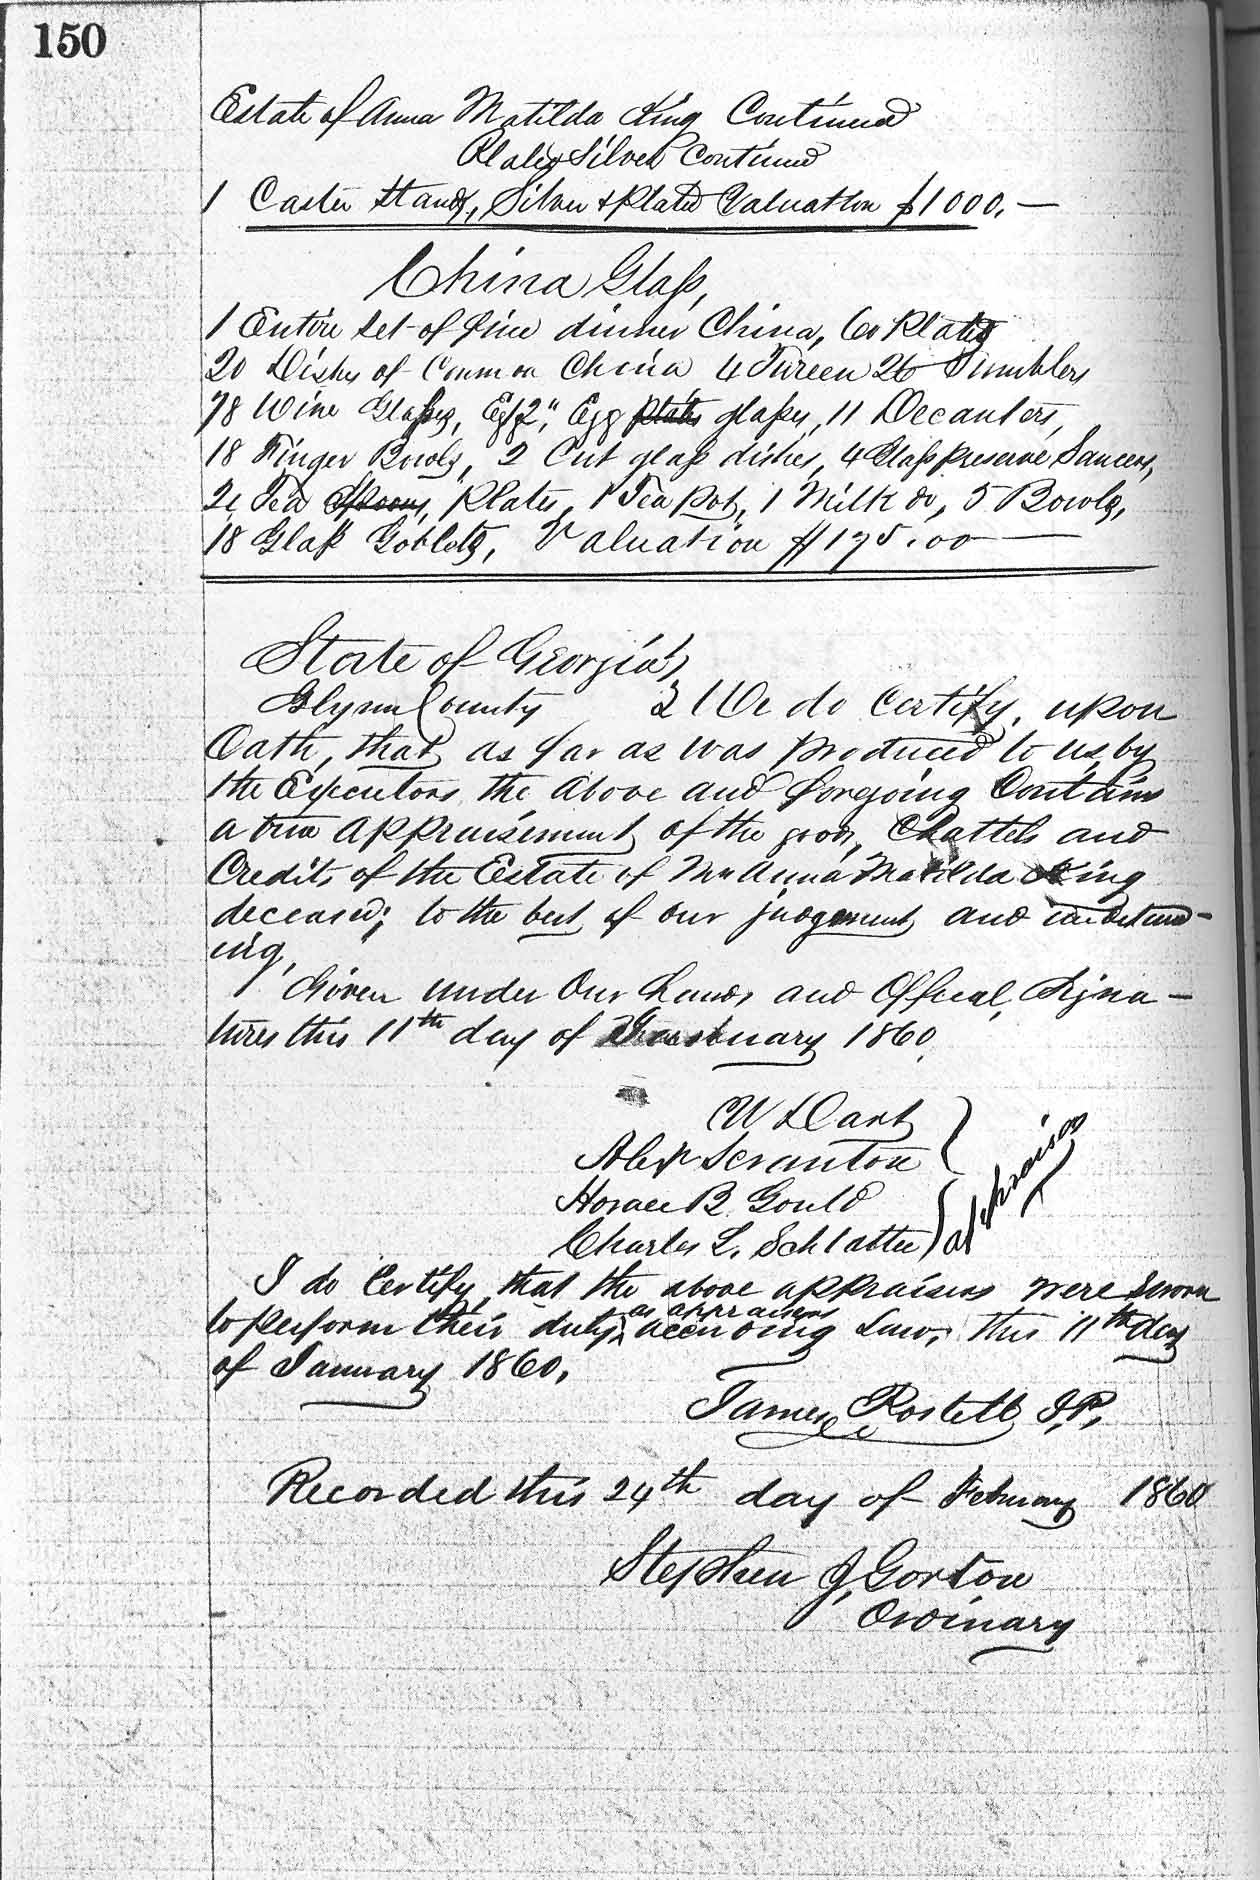 150
Estate of Anna Matilda King Continued
Plate & Silver Continued
1 Caster Stand, Silver & Plated Valuation $1000.—
China Glass,
1 Entire set of fine dinner China, 60 Plates
20 Dishes of Common China 4 Tureen 26 Tumblers
78 Wine Glasses, Egg 2", Egg plates glasses, 11 Decanters,
18 Finger Bowls, 2 Cut glass dishes, 4 Glass preserve Saucers,
Tea Spoons, Plates, 1 Tea pot, 1 Milk do, 5 Bowls,
18 Glass Goblets, Valuation $175.00—
State of Georgia
Glynn County We do Certify, upon
Oath, that as far as was produced to us, by
the Executors the above and foregoing Contains
a true appraisement of the goods, Chattels and
Credits of the Estate of Mrs Anna Matilda King
deceased; to the best of our judgement and understand-
ing,
Given under Our hands and Offical, Signa-
tures this 11th day of 1860.
W Dart
Alexr Scranton
Horace B. Gould
Charles L. Schlatter
I do Certify that the above appraisers were sworn
to perform their duty, as appraisers according Law, this 11th day
of January 1860.
James Postell J.P.
Recorded this 24th day of February 1860
Stephen J, Gorton
Ordinary